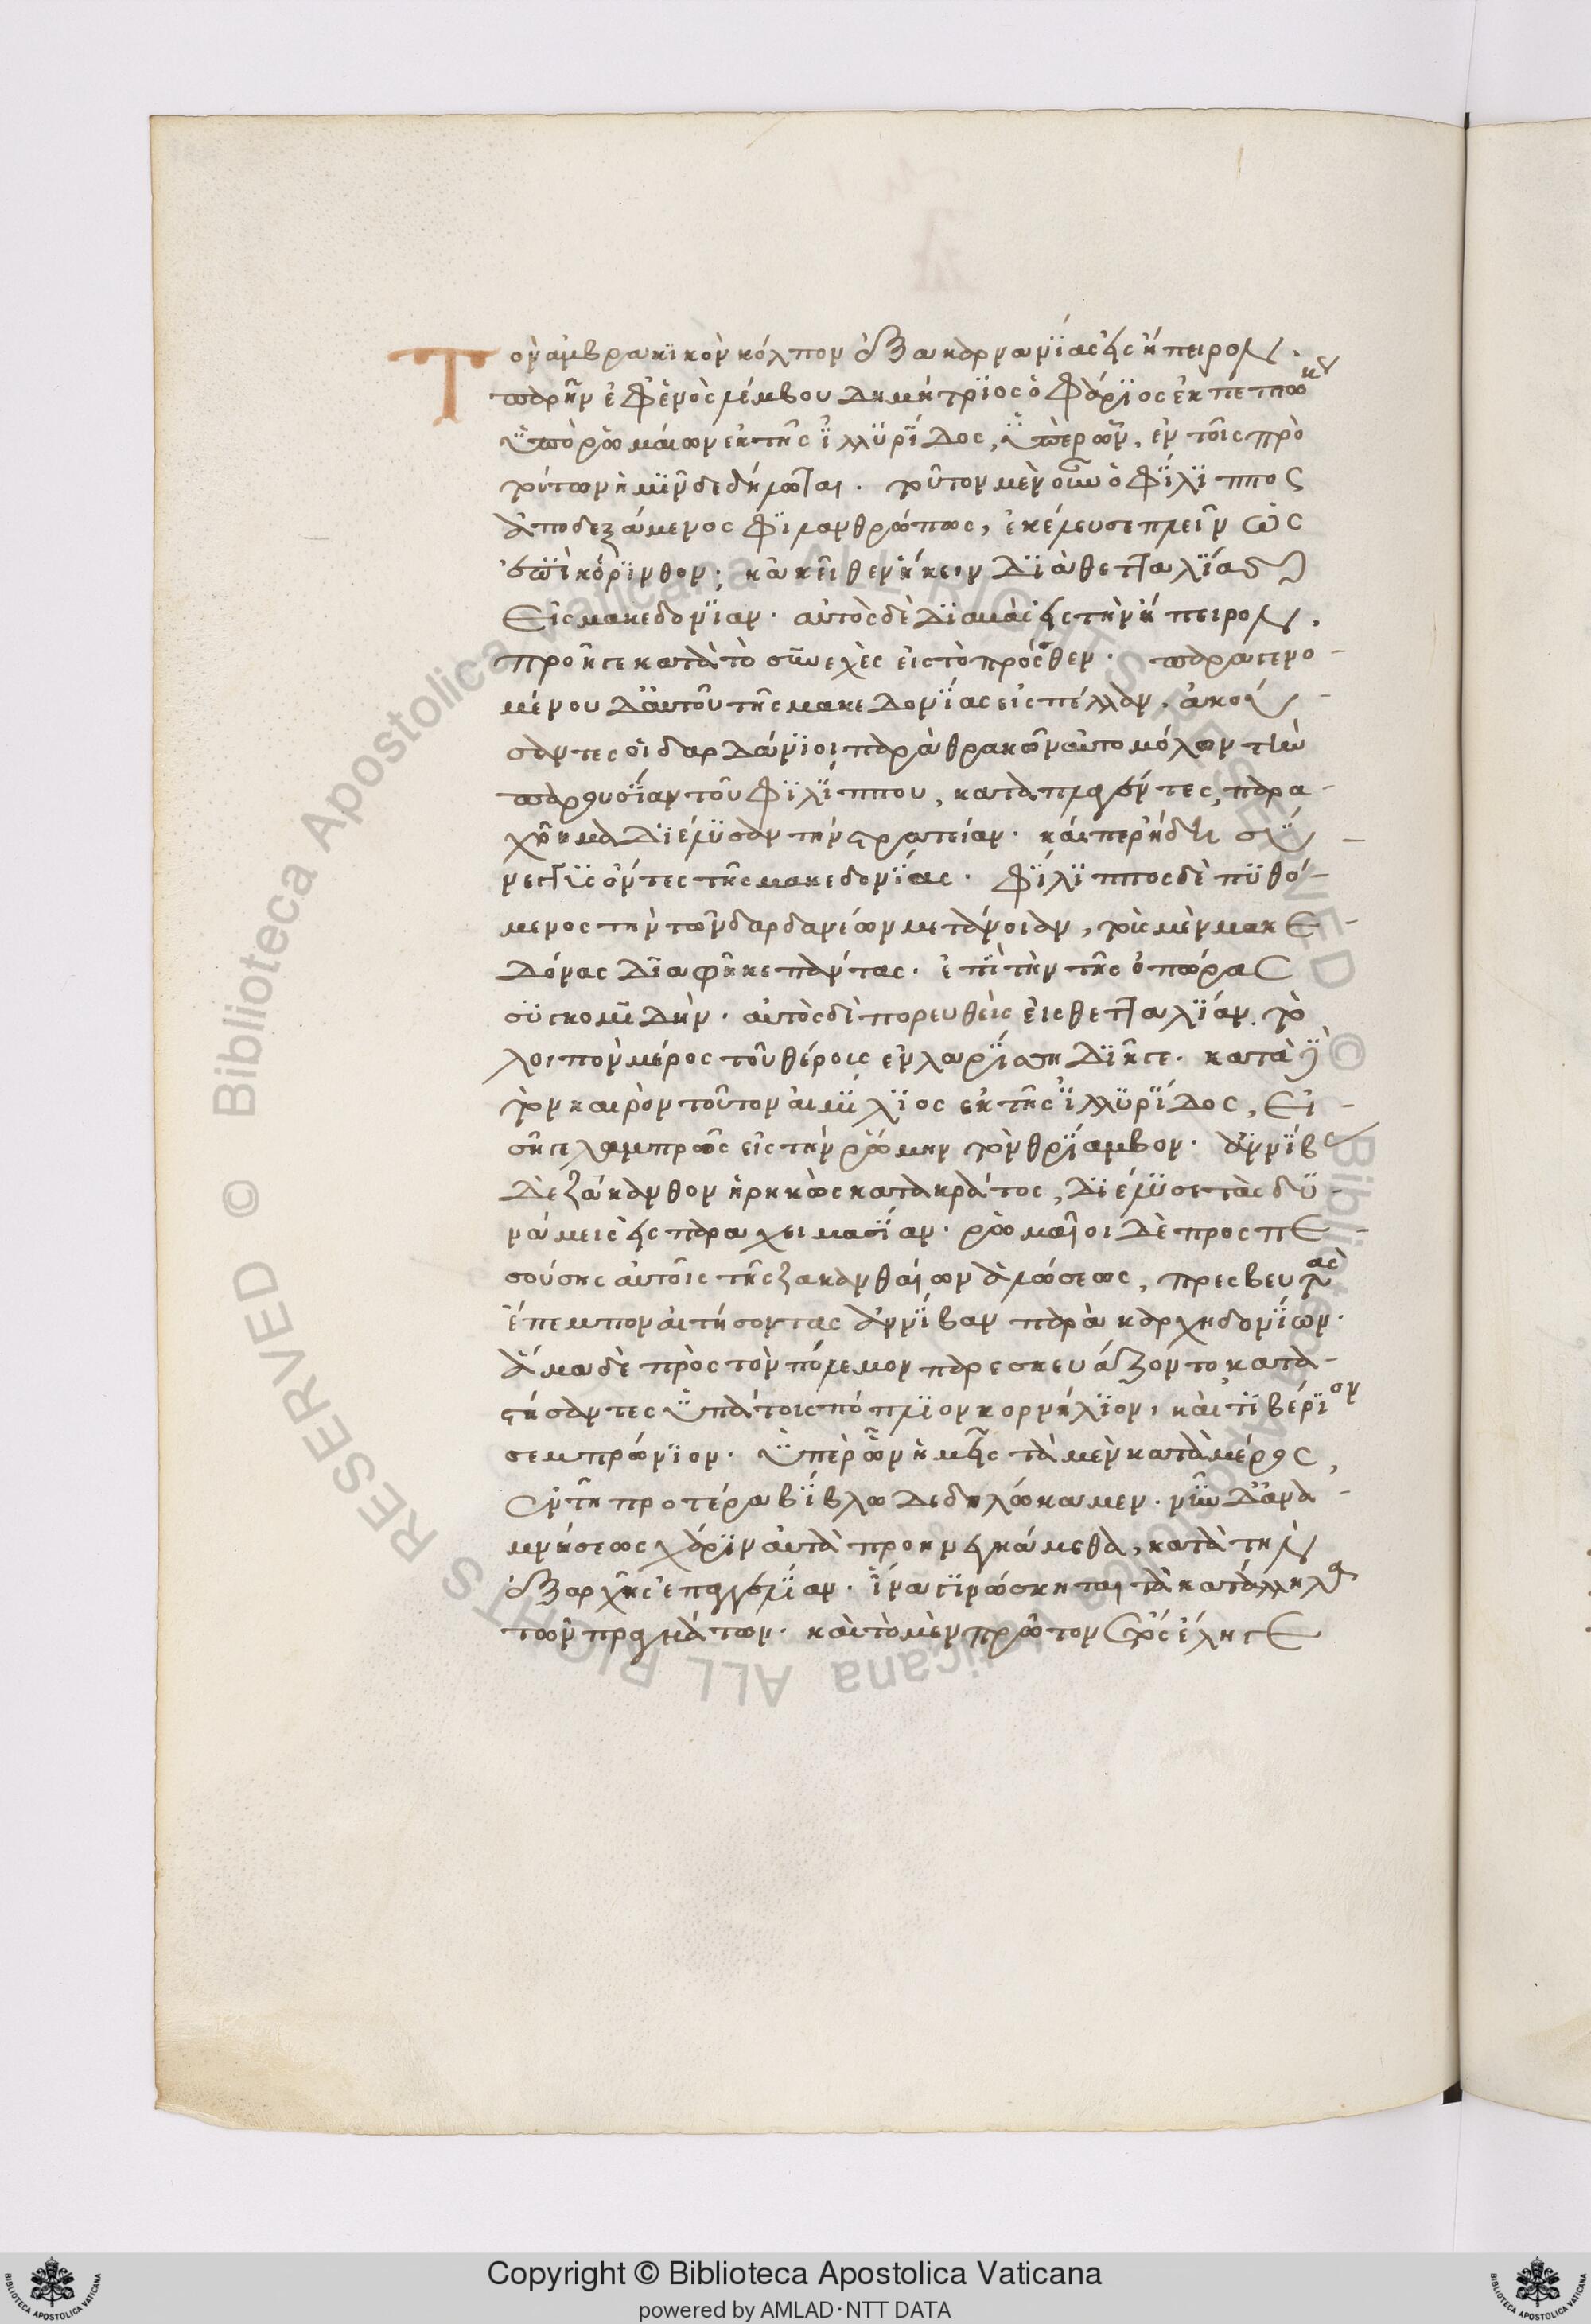 Τὸν ἀμβρακικὸν κόλπον ἐξ ἀκαρνανίας εἰς ἤπειρον.
παρῆν ἐφ' ἑνὸς λέμβου δημήτριος ὁ φάριος ἐκπεπτωκὼς
ὑπὸ ῥωμαίων ἐκ τῆς ἰλλυρίδος, ὑπὲρ ὧν, ἐν τοῖς πρὸ
τούτων ἡμῖν δεδήλωται. τοῦτον μὲν οὖν ὁ φίλιππος
ἀποδεξάμενος φιλανθρώπως, ἐκέλευσε πλεῖν ὡς
ἐπὶ κόρινθον· κἀκεῖθεν ἥκειν διὰ θετταλίας
εἰς μακεδονίαν. αὐτὸς δὲ διαβὰς εἰς τὴν ἤπειρον.
προῆγε κατὰ τὸ συνεχὲς εἰς τὸ πρόσθεν. παραγενο-
μένου δ' αὐτοῦ τῆς μακεδονίας εἰς πέλλαν, ἀκού-
σαντες οἱ δαρδάνιοι παρὰ θρακῶν αὐτομόλων τὴν
παρουσίαν τοῦ φιλίππου, καταπλαγέντες, παρα-
χρῆμα διέλυσαν τὴν στρατείαν. καίπερ ἤδη σύ-
νεγγυς ὄντες τῆς μακεδονίας. φίλιππος δὲ πυθό-
μενος τὴν τῶν δαρδανίων μετάνοιαν, τοὺς μὲν μακε-
δόνας διαφῆκε πάντας. ἐπὶ τὴν τῆς ὀπώρας
συγκομιδήν. αὐτὸς δὲ πορευθεὶς εἰς θετταλίαν, τὸ
λοιπὸν μέρος τοῦ θέρους ἐν λαρίσῃ διῆγε. κατὰ δὲ
τὸν καιρὸν τοῦτον αἰμίλιος ἐκ τῆς ἰλλυρίδος, εἰ-
σῆγε λαμπρῶς εἰς τὴν ῥώμην τὸν θρίαμβον. ἀννίβας
δὲ ζάκανθον ᾑρηκὼς κατὰ κράτος, διέλυσε τὰς δυ-
νάμεις εἰς παραχειμασίαν. ῥωμαῖοι δὲ προσπε
σούσης αὐτοῖς τῆς ζακανθαίων ἁλώσεως, πρεσβευτὰς
ἔπεμπον αἰτήσοντας ἀννίβαν παρὰ καρχηδονίων.
ἅμα δὲ πρὸς τὸν πόλεμον παρεσκευάζοντο κατα-
στήσαντες ὑπάτους πόπλιον κορνήλιον, καὶ τιβέριον
σεμπρώνιον. ὑπὲρ ὧν ἡμεῖς τὰ μὲν κατὰ μέρος,
ἐν τῇ προτέρᾳ βίβλῳ δεδηλώκαμεν. νῦν δ' ἀνα-
μνήσεως χάριν αὐτὰ προηνεγκάμεθα, κατὰ τὴν
ἐξ ἀρχῆς ἐπαγγελίαν. ἵνα γινώσκηται τὰ κατάλληλα
τῶν πραγμάτων. καὶ τὸ μὲν πρῶτον ἔτος ἔληγε
Copyright © Biblioteca Apostolica Vaticana
powered by AMLAD·NTT DATA
© Biblioteca Apostolica Vaticana ALL RIGHTS RESERVED © Biblioteca Apostolica Vaticana ALL RIGHTS RESERVED
BIBLIOTECA APOSTOLICA VATICANA
BIBLIOTECA APOSTOLICA VATICANA